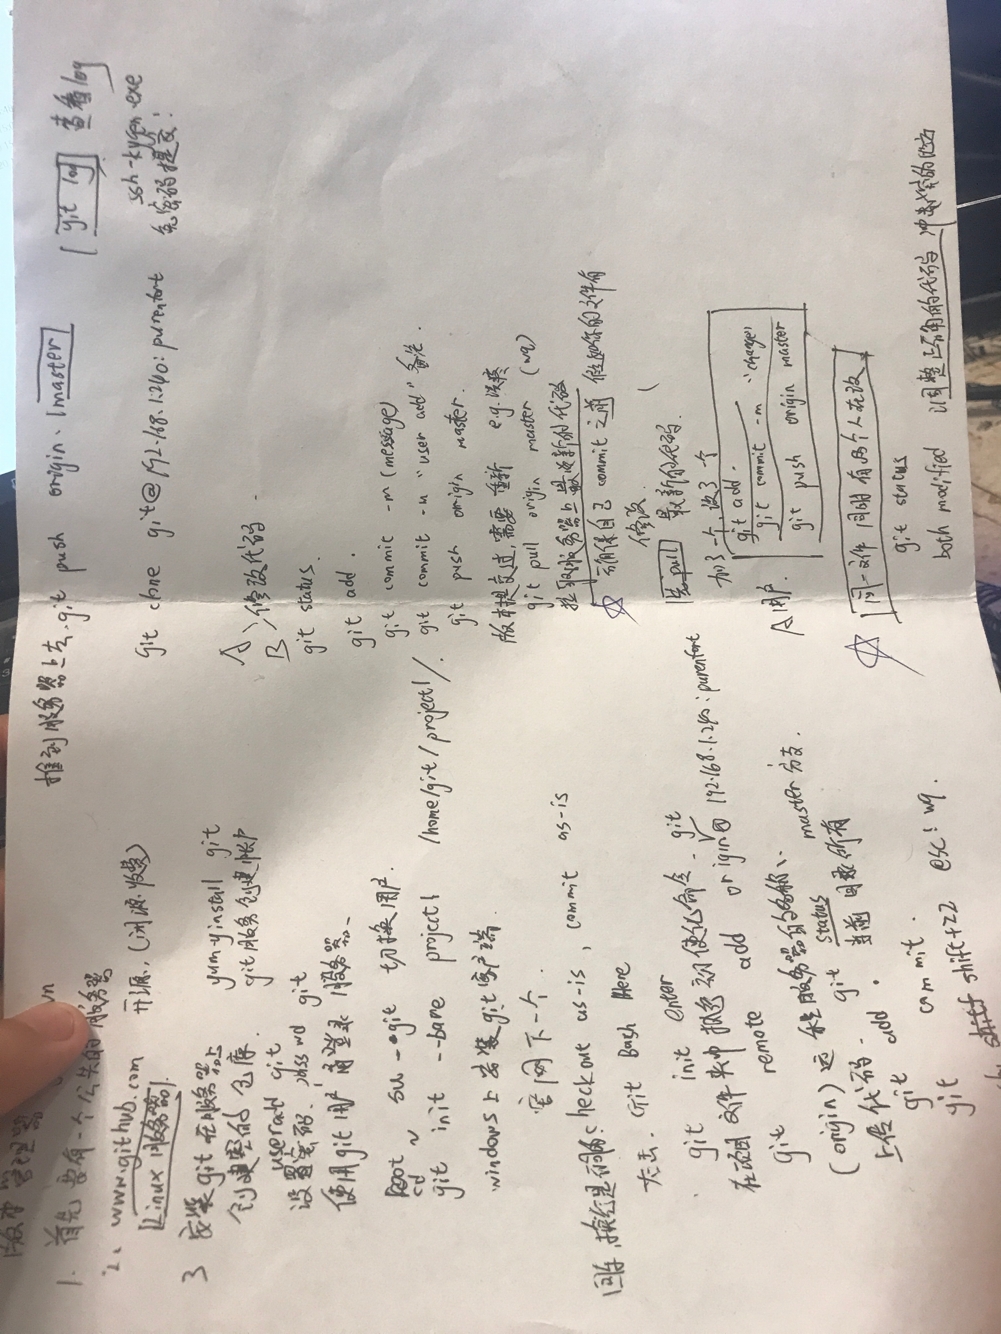 版本管理器
1. 首先要有一个公共的服务器
2. www.github.com 开源,(闭源收费)
Linux 服务器
3 安装git在服务器上 yum -y install git
创建空的仓库. git服务创建帐户
useradd git
设置密码. passwd git
使用git用户再登录服务器.
Root su - git 切换用户.
cd ~
git init --bare project1 /home/git/project1/.
windows上安装git客户端.
官网下一个.
回车,换行是问题: checkout as-is, commit as-is
右击. Git Bash Here
git init enter
在项目文件夹中执行初使化命令. git
git remote add origin @ 192.168.1.240:purenfort
(origin) 远程服务器的名称、
上传代码. git status master分支.
git add . 当前目录所有
git commit.
shift+zz esc! wq.
推到服务器上去. git push origin master
git log 查看log
ssh-kygen.exe
git clone git@192.168.1.240:purenfort 免密码提交!
A
B 修改代码
git status.
git add .
git commit -m (message)
git commit -m "user add" 备注.
git push origin master.
版本提交过,需要重新 e.g.
git pull origin master (wq)
拉取服务器上最新的代码
☆ 确保自己 commit 之前 假如你的文件有
修改.
先pull 最新的代码.
加了一个,改了一个
A用户. git add.
git commit -m "change"
git push origin master
☆ 同一文件 同时有两个人在改
git status
both modified 调整正确的代码 冲突的地方